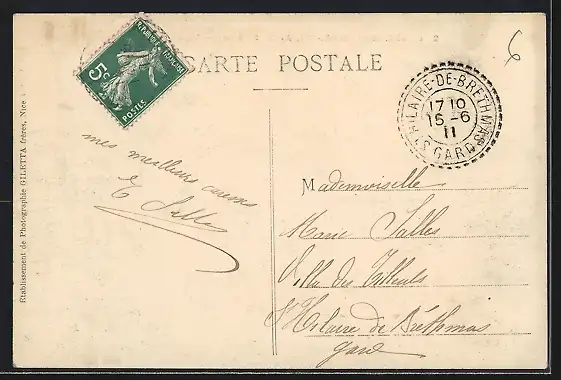 CARTE POSTALE
6
RÉPUBLIQUE FRANÇAISE
5c
POSTES
ST HILAIRE-DE-BRETHMAS
17 10
16 -6
11
GARD
Etablissement de Photographie GILETTA frères, Nice
mes meilleurs
E Salles
Mademoiselle
Marie Salles
Villa des Tilleuls
St Hilaire de Bréthmas
Gard